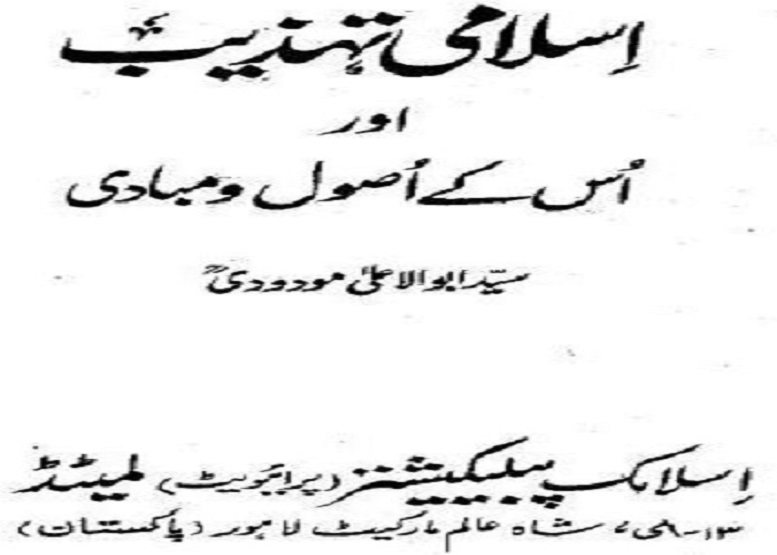 اِسلامی تہذیب
اور
اُس کے اُصول و مبادی
سیّد ابوالاعلیٰ مودودیؒ
اِسلامک پبلیکیشنز (پرائیویٹ) لمیٹڈ
۱۳-ای، شاہ عالم مارکیٹ لاہور (پاکستان)